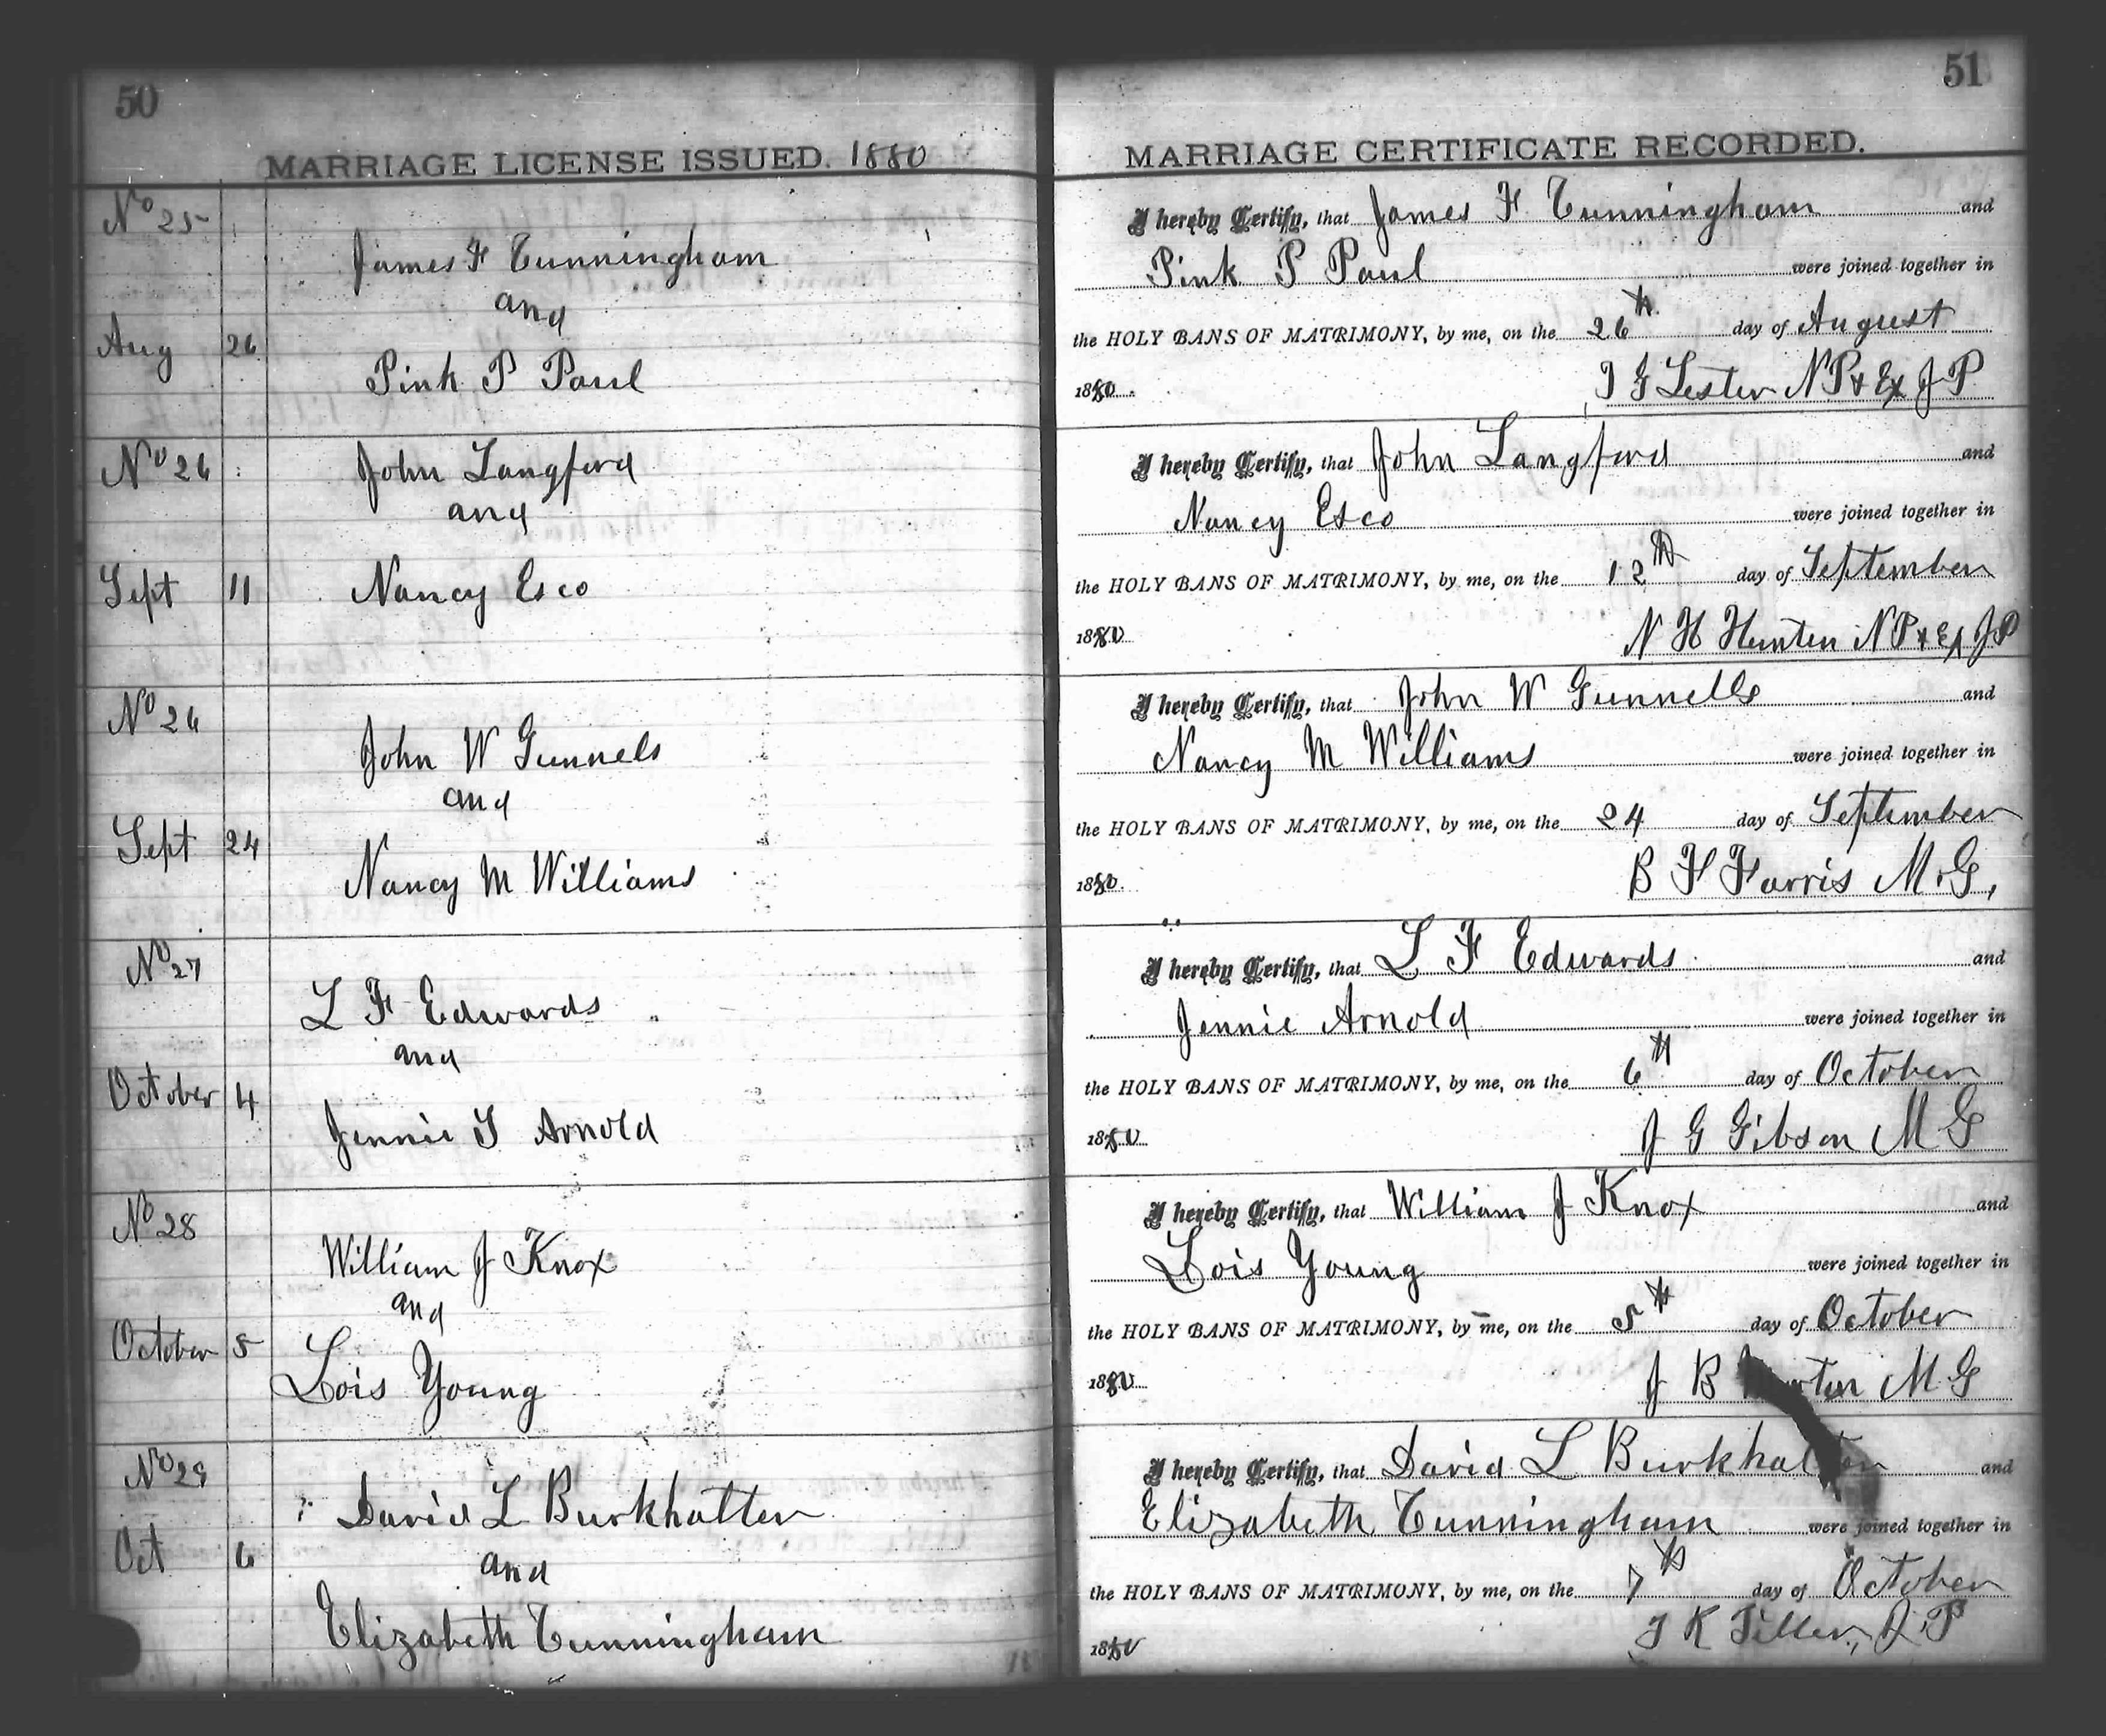 50
MARRIAGE LICENSE ISSUED. 1880
No 25
James F Cunningham
and
Aug 26
Pink P Paul
No 26
John Langford
and
Sept 11
Nancy Esco
No 26
John W Gunnels
and
Sept 24
Nancy M Williams
No 27
L F Edwards
and
October 4
Jennie T Arnold
No 28
William J Knox
and
October 5
Lois Young
No 29
David L Burkhalter
Oct 6
and
Elizabeth Cunningham
51
MARRIAGE CERTIFICATE RECORDED.
I hereby Certify, that James F Cunningham and
Pink P Paul were joined together in
the HOLY BANS OF MATRIMONY, by me, on the 26th day of August
1880. J G Lester N P & Ex J P
I hereby Certify, that John Langford and
Nancy Esco were joined together in
the HOLY BANS OF MATRIMONY, by me, on the 12th day of September
1880 N H Hunter N P & Ex J P
I hereby Certify, that John W Gunnells and
Nancy M Williams were joined together in
the HOLY BANS OF MATRIMONY, by me, on the 24 day of September
1880. B F Farris M.G.,
I hereby Certify, that L F Edwards and
Jennie Arnold were joined together in
the HOLY BANS OF MATRIMONY, by me, on the 6th day of October
1880 J G Gibson M G
I hereby Certify, that William J Knox and
Lois Young were joined together in
the HOLY BANS OF MATRIMONY, by me, on the 5th day of October
1880 J B M G
I hereby Certify, that David L Burkhalter and
Elizabeth Cunningham were joined together in
the HOLY BANS OF MATRIMONY, by me, on the 7th day of October
1880 T K Tiller, J.P